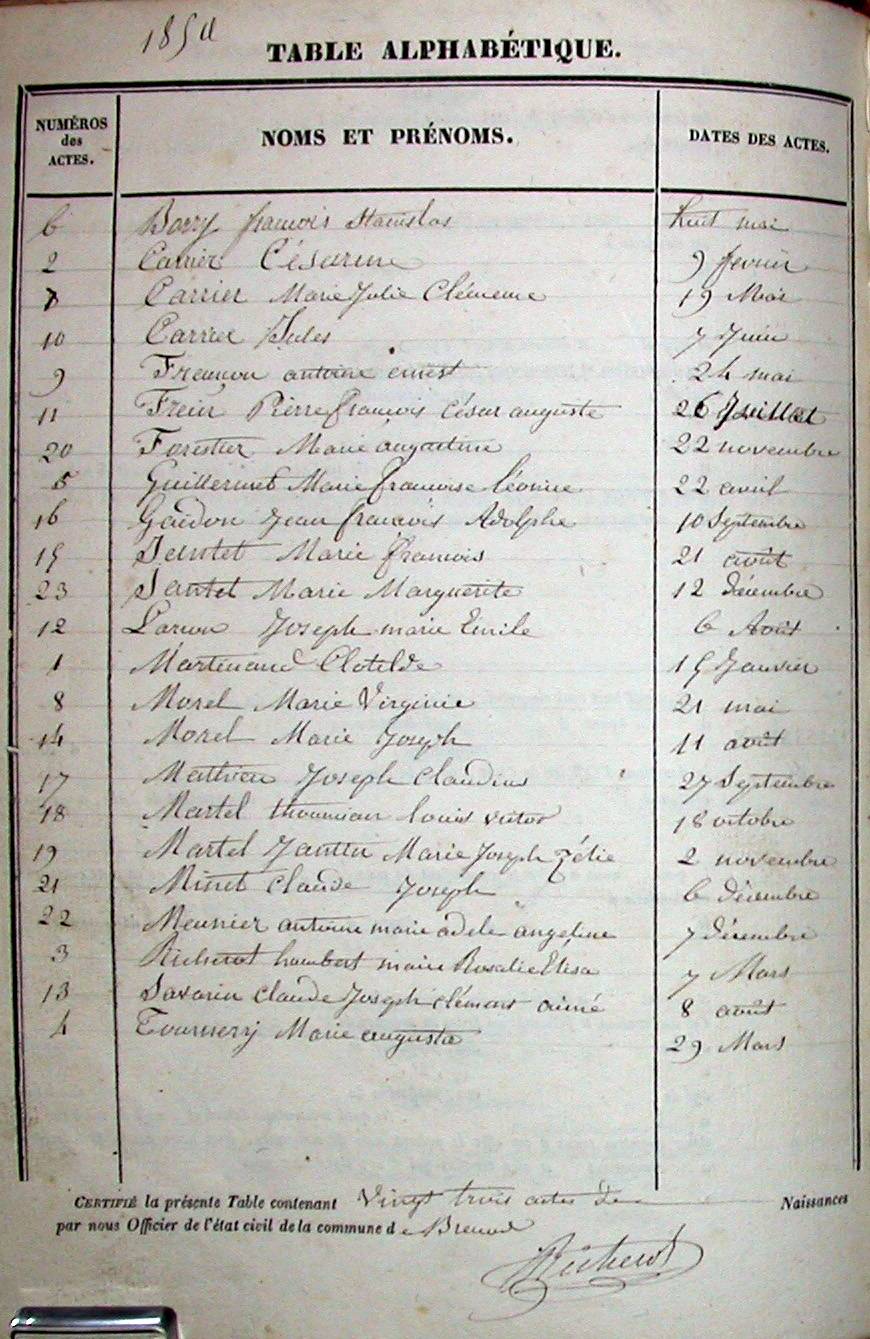 1850
TABLE ALPHABÉTIQUE.
NUMÉROS des ACTES. NOMS ET PRÉNOMS. DATES DES ACTES.
6 Borry francois Stanislas huit mai
2 Carrier Césarine 9 fevrier
7 Carrier Marie Julie Clémence 19 Mai
10 Carrier Jules 7 Juin
9 antoine ernest 24 mai
11 Pierre francois césar auguste 26 Juillet
20 Forestier Marie augustine 22 novembre
5 Guillermet Marie francoise léonine 22 avril
16 Gaidon Jean francois Adolphe 10 Septembre
15 Jantet Marie francois 21 août
23 Jantet Marie Marguerite 12 décembre
12 Joseph marie Emile 6 Août
1 Martinand Clotilde 15 Janvier
8 Morel Marie Virginie 21 mai
14 Morel Marie Joseph 11 août
17 Mathieu Joseph claudius 27 Septembre
18 Martel louis victor 18 octobre
19 Martel Jantin Marie Joseph Zélie 2 novembre
21 Minet claude Joseph 6 décembre
22 Meunier antoine marie adele angeline 7 décembre
3 Richerot humbert marie Rosalie Elisa 7 Mars
13 Savarin claude Joseph clémont aimé 8 août
4 Tournery Marie augusta 29 Mars
CERTIFIÉ la présente Table contenant Vingt trois actes de Naissances
par nous Officier de l'état civil de la commune de Brenod
Richerot